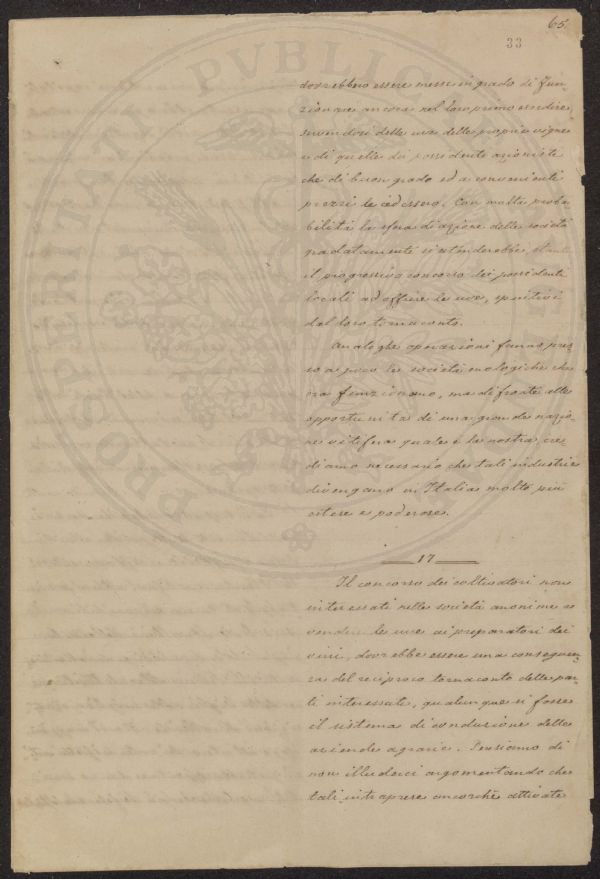 65.
33
dovrebbero essere messe in grado di fun-
zionare ancora nel loro primo esordire
servendosi delle uve delle proprie vigne
e di quelle di possidenti azionisti
che di buon grado ed a convenienti
prezzi le cedessero. Con molta proba-
bilità la sfera di azione delle società
gradatamente si estenderebbe, stante
il progressivo concorso dei possidenti
locali ad offrire le uve, spintivi
dal loro tornaconto.
Analoghe operazioni fanno pres-
so a poco le società enologiche che
ora funzionano, ma di fronte alle
opportunità di una grande nazio-
ne vitifera quale è la nostra, cre-
diamo necessario che tali industrie
divengano in Italia molto più
estese e poderose.
17
Il concorso dei coltivatori non
interessati nelle società anonime a
vendere le uve ai preparatori dei
vini, dovrebbe essere una conseguen-
za del reciproco tornaconto delle par-
ti interessate, qualunque si fosse
il sistema di conduzione delle
aziende agrarie. Pensiamo di
non illuderci argomentando che
tali intraprese ancorchè attivate
PVBLICAE
PROSPERITATI